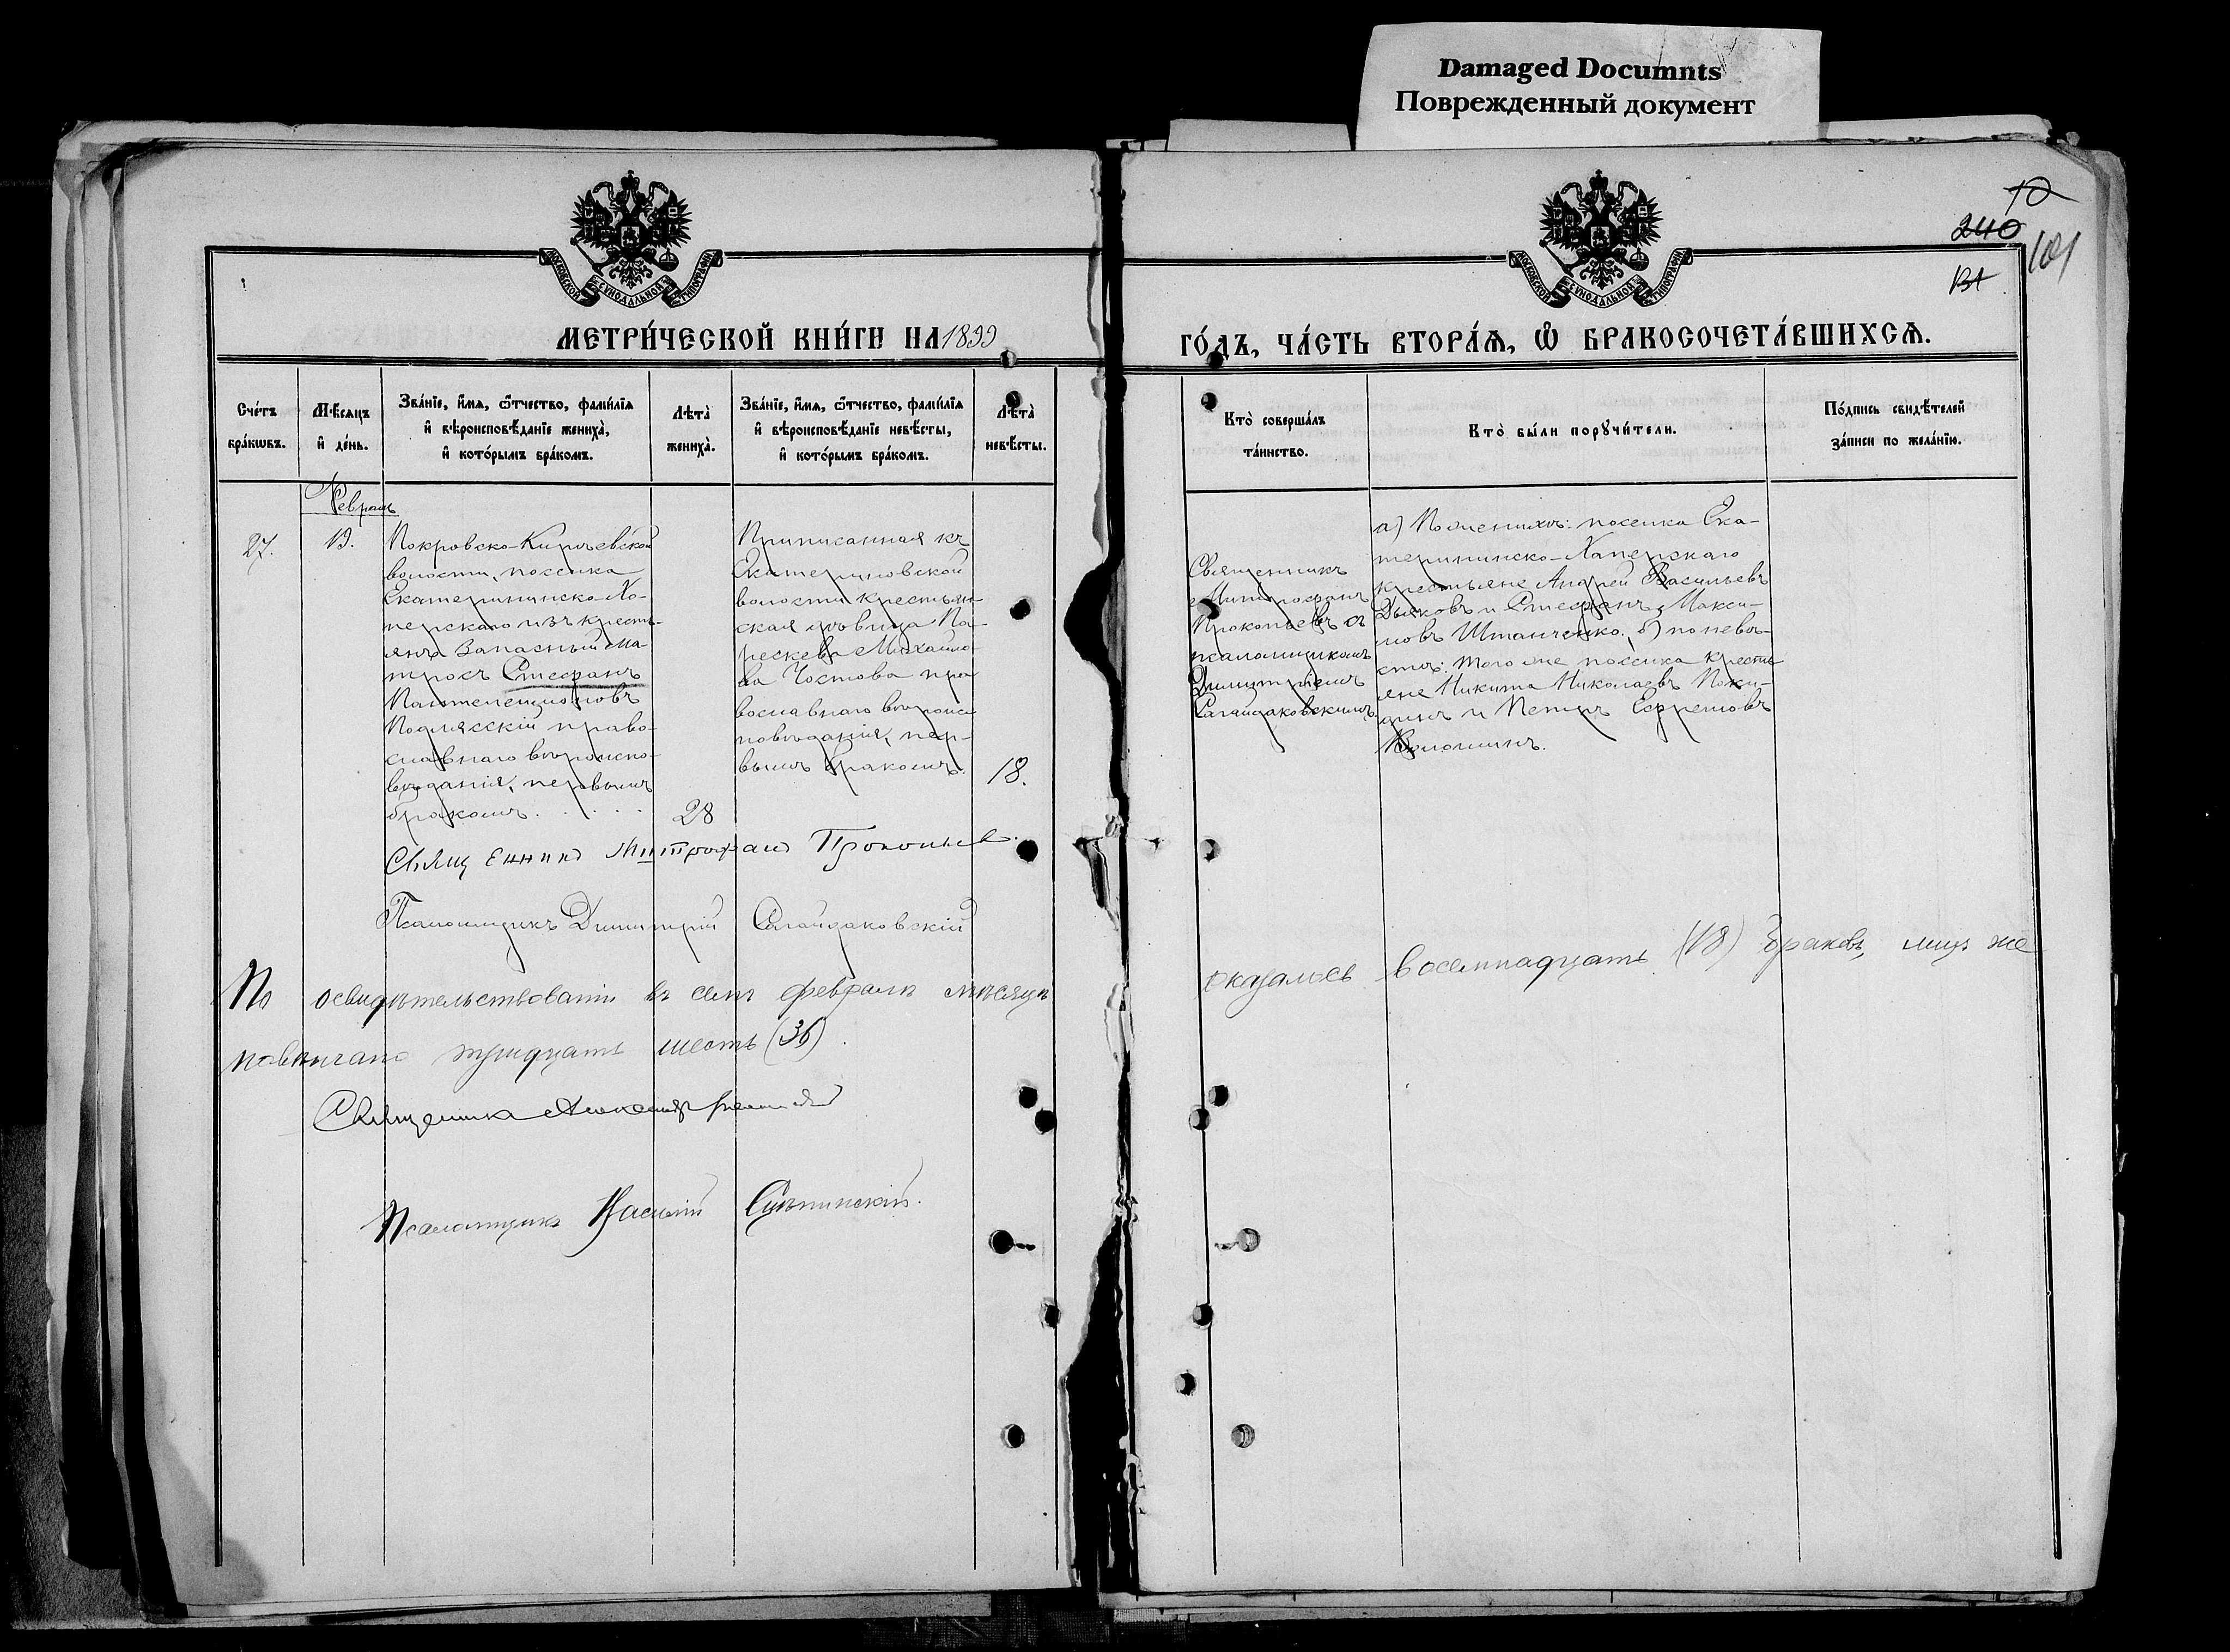 Damaged Documnts
Поврежденный документ
10
240
131
101
МОСКОВСКОЙ СѴНОДАЛЬНОЙ ТИПОГРАФІИ
МОСКОВСКОЙ СѴНОДАЛЬНОЙ ТИПОГРАФІИ
МЕТРИ́ЧЕСКОЙ КНИ́ГИ НА 1899
ГО́ДЪ, ЧА́СТЬ ВТОРА́Я, Ѽ БРАКОСОЧЕТА́ВШИХСЯ.
Сче́тъ
бра́кѡвъ.
Мѣ́сяцъ
и҆ де́нь.
Зва́нїе, и҆́мя, ѻ҆́тчество, фами́лїя
и҆ вѣроисповѣ́данїе жениха̀,
и҆ кото́рымъ бра́комъ.
Лѣта̀
жениха̀.
Зва́нїе, и҆́мя, ѻ҆́тчество, фами́лїя
и҆ вѣроисповѣ́данїе невѣ́сты,
и҆ кото́рымъ бра́комъ.
Лѣта̀
невѣ́сты.
Кто̀ соверша́лъ
та́инство.
Кто̀ бы́ли порꙋчи́тели.
По́дпись свидѣ́телей
за́писи по жела́нїю.
Февраль
27.
13.
Покровско-Кирѣевской
волости, поселка
Екатерининско-Хо-
перскаго изъ кресть-
янъ Запасный ма-
тросъ Стефанъ
Пантелеимоновъ
Подлясскій право-
славнаго вѣроиспо-
вѣданія, первымъ
бракомъ.
28
Приписанная къ
Екатериновской
волости крестьян-
ская дѣвица Па-
раскева Михайло-
ва Чостова пра
вославнаго вѣроис
повѣданія, пер-
вымъ бракомъ.
18.
Священникъ
Митрофанъ
Прокопьевъ съ
псаломщикомъ
Димитріемъ
Сагайдаковскимъ
а) По женихѣ: поселка Ека-
терининско-Хаперскаго
крестьяне Андрей Васильевъ
Дьяковъ и Стефанъ Макси-
мовъ Штанченко, б) по невѣ-
стѣ: того же поселка кресть
яне Никита Николаевъ Поки-
динъ и Петръ Ефремовъ
Священникъ Митрофанъ Прокопьев.
Псаломщикъ Димитрій Сагайдаковскій
По освидѣтельствованіи въ семъ февралѣ мѣсяцѣ оказалось восемнадцать (18) браковъ, лицъ же
повѣнчано тридцать шесть (36).
Священникъ Александръ
Псаломщикъ Василій